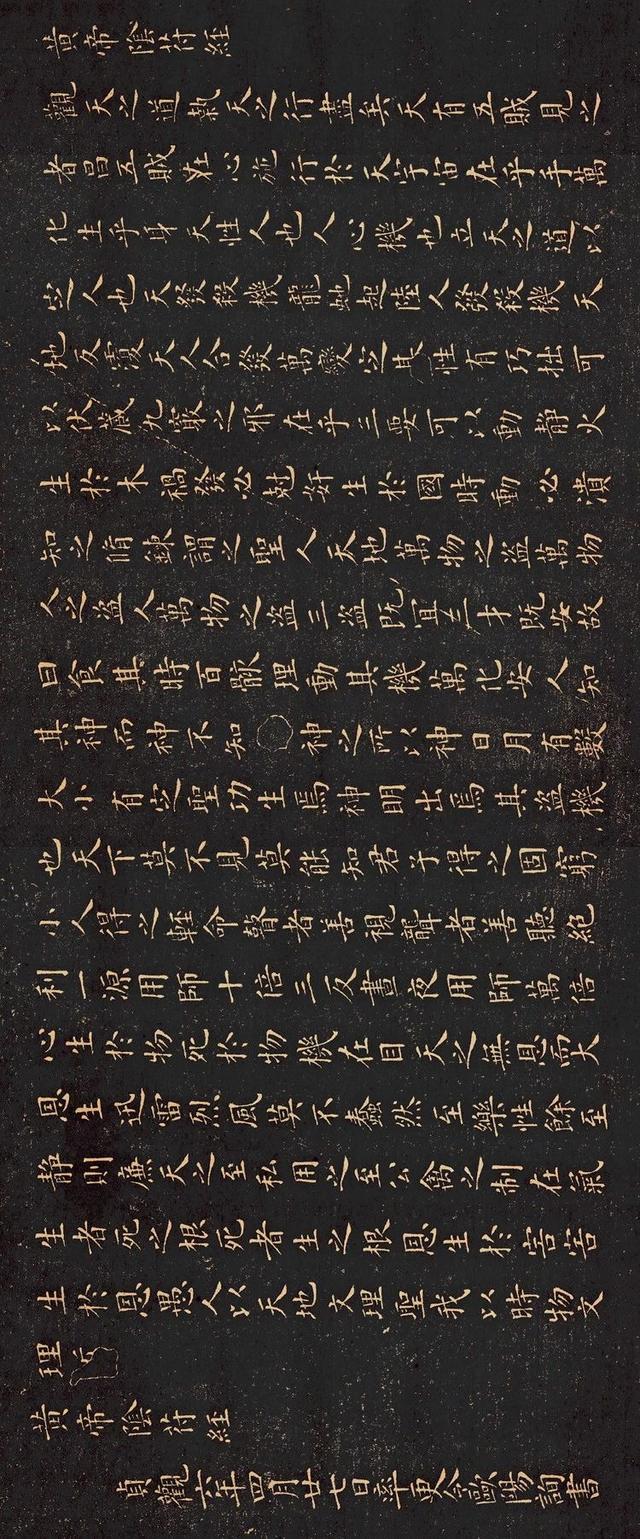 黃帝陰符経
觀天之道執天之行盡矣天有五賊見之
者昌五賊在心施行於天宇宙在乎手萬
化生乎身天性人也人心機也立天之道以
定人也天發殺機龍虵起陸人發殺機天
地反覆天人合發萬變定其性有巧拙可
以伏藏九竅之邪在乎三要可以動靜火
生於木禍發必尅姧生於國時動必潰
知之脩鍊謂之聖人天地萬物之盜萬物
人之盜人萬物之盜三盜既宜三才既安故
曰食其時百骸理動其機萬化安人知
其神而神不知神之所以神日月有數
大小有定聖功生焉神明出焉其盜機
也天下莫不見莫能知君子得之固窮
小人得之輕命瞽者善視聾者善聽絕
利一源用師十倍三反晝夜用師萬倍
心生於物死於物機在目天之無恩而大
恩生迅雷烈風莫不蠢然至樂性餘至
靜則廉天之至私用之至公禽之制在氣
生者死之根死者生之根恩生於害害
生於恩愚人以天地文理聖我以時物文
理
黃帝陰符経
貞觀六年四月廿七日率更令歐陽詢書